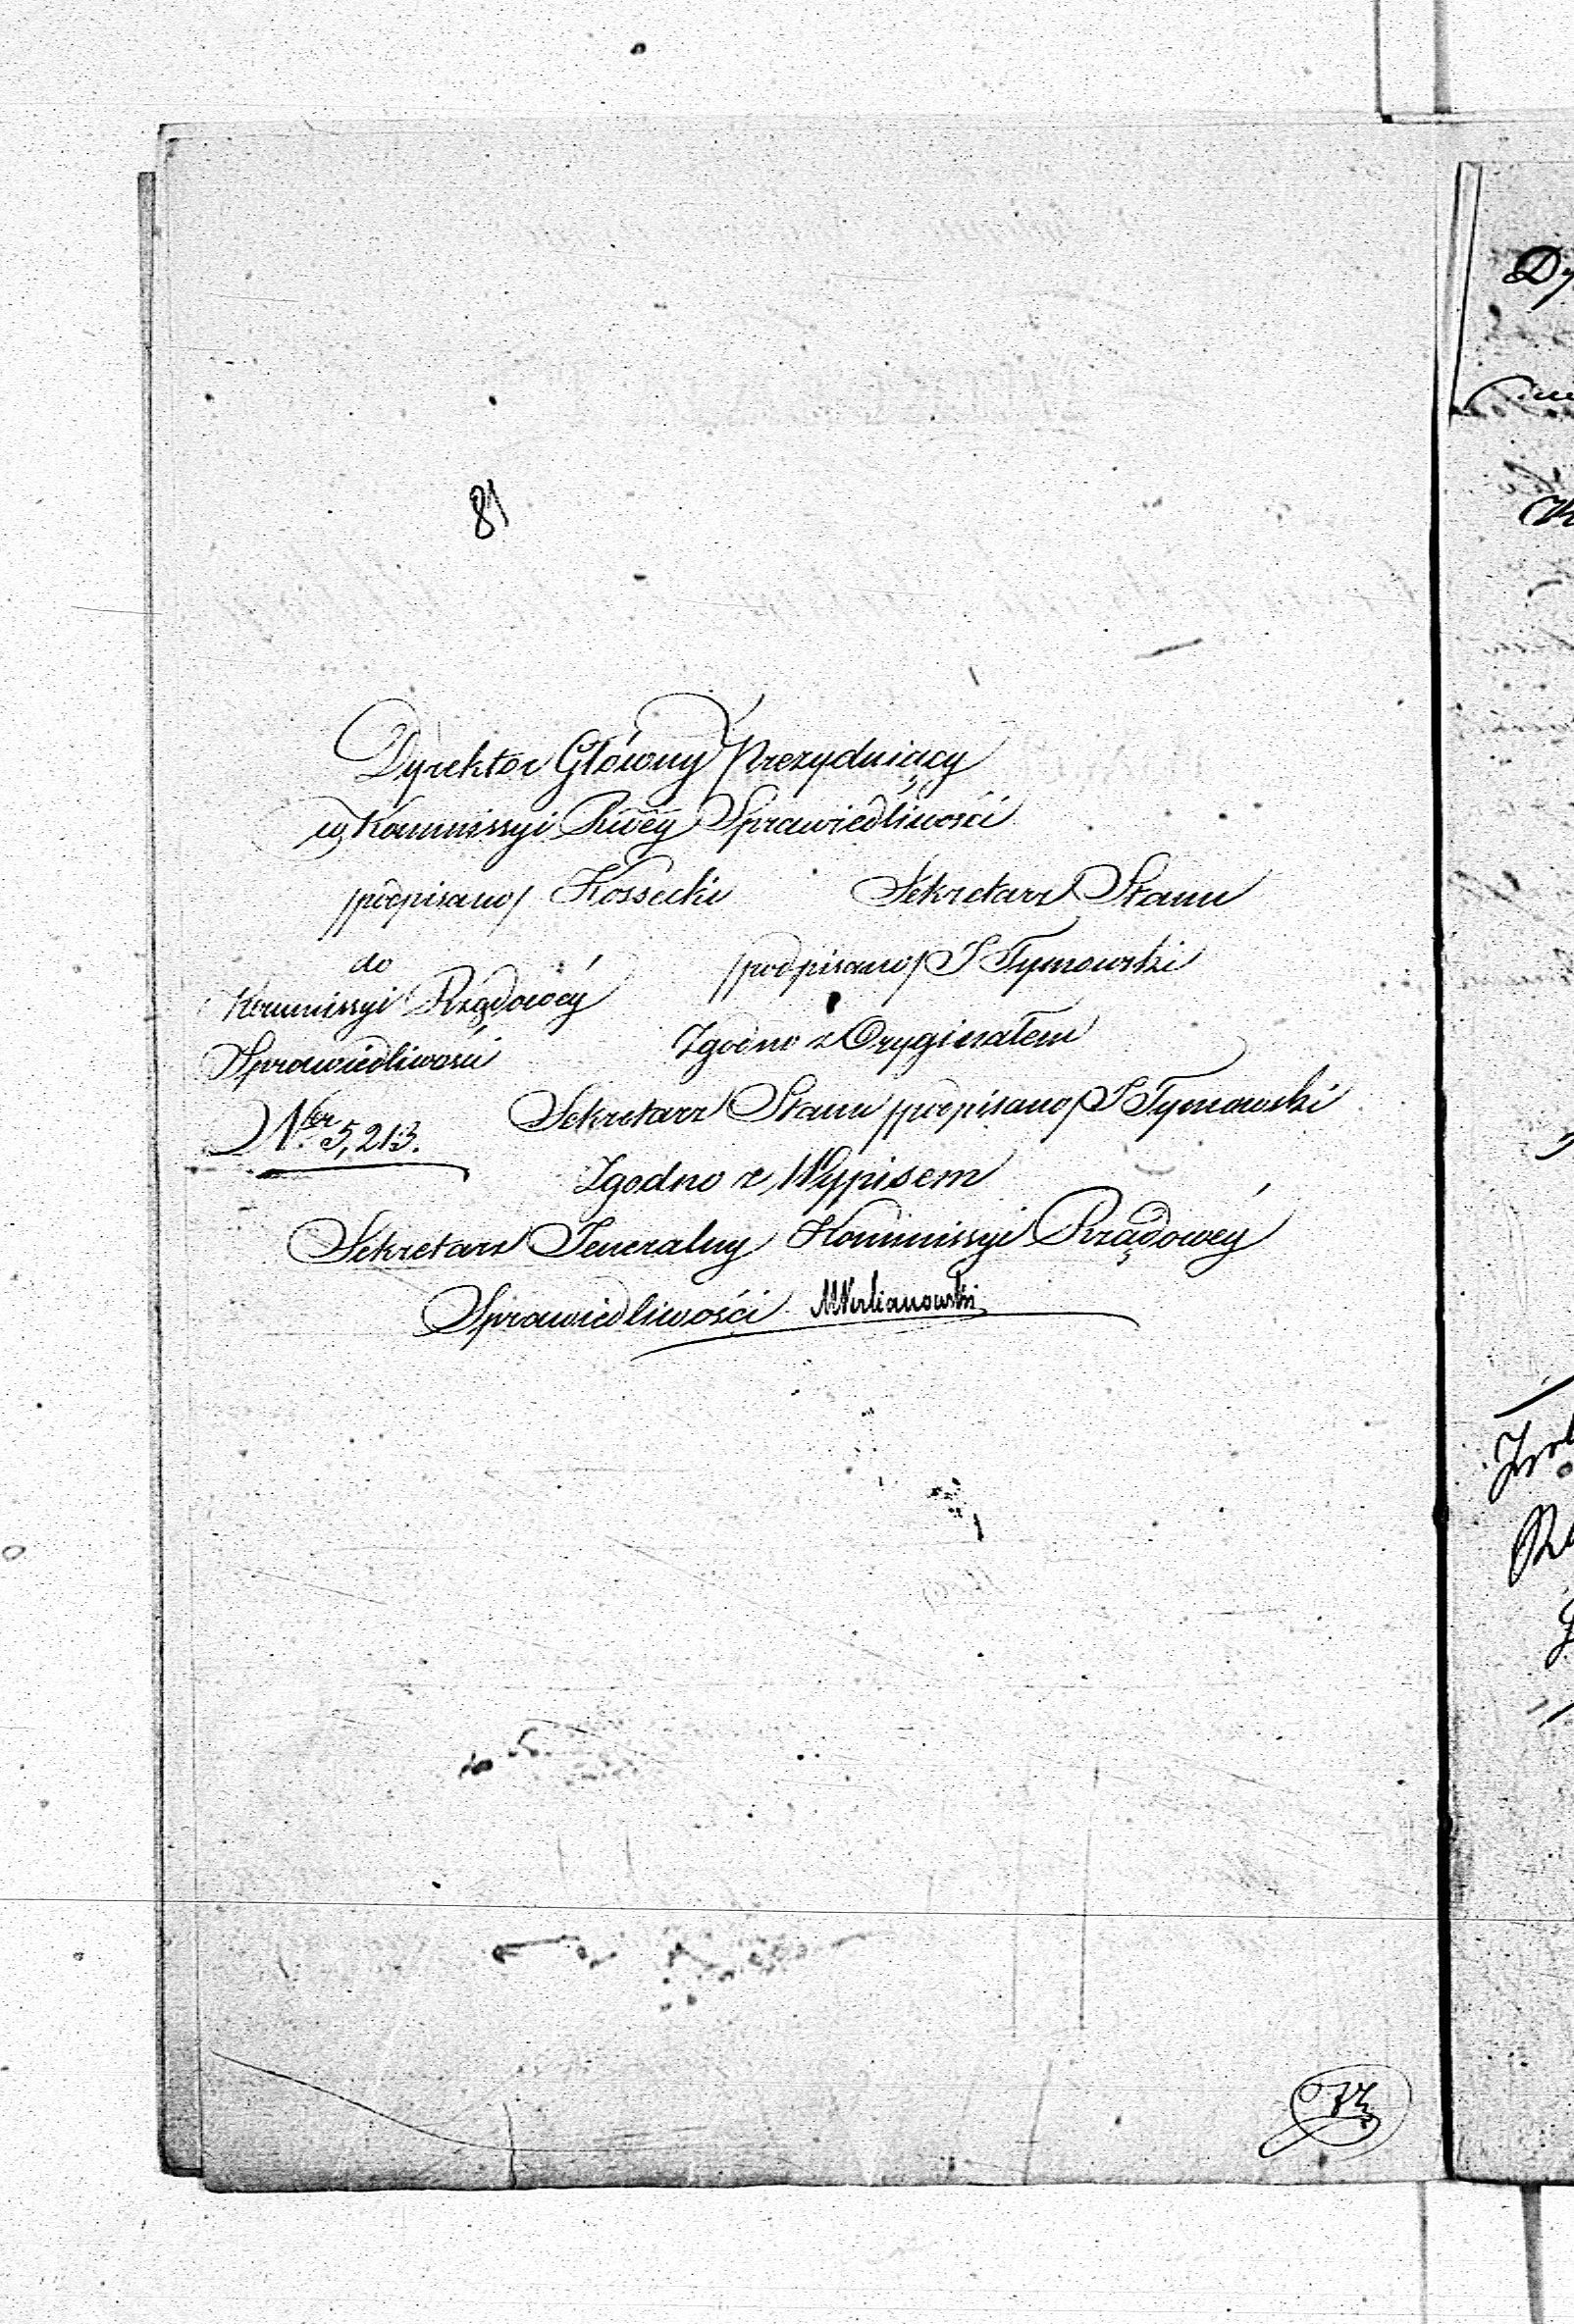 81
Dyrektor Główny Prezyduiący
w Kommissyi Rwéy Sprawiedliwości
/podpisano/ Kossecki
Sekretarz Stanu
/podpisano/ J Tymowski
do
Kommissyi Rządowéy
Sprawiedliwości
Nter 5,213.
Zgodno z Oryginałem
Sekretarz Stanu /podpisano/ J Tymowski
Zgodno z Wypisem
Sekretarz Jeneralny Kommissyi Rządowéy
Sprawiedliwości